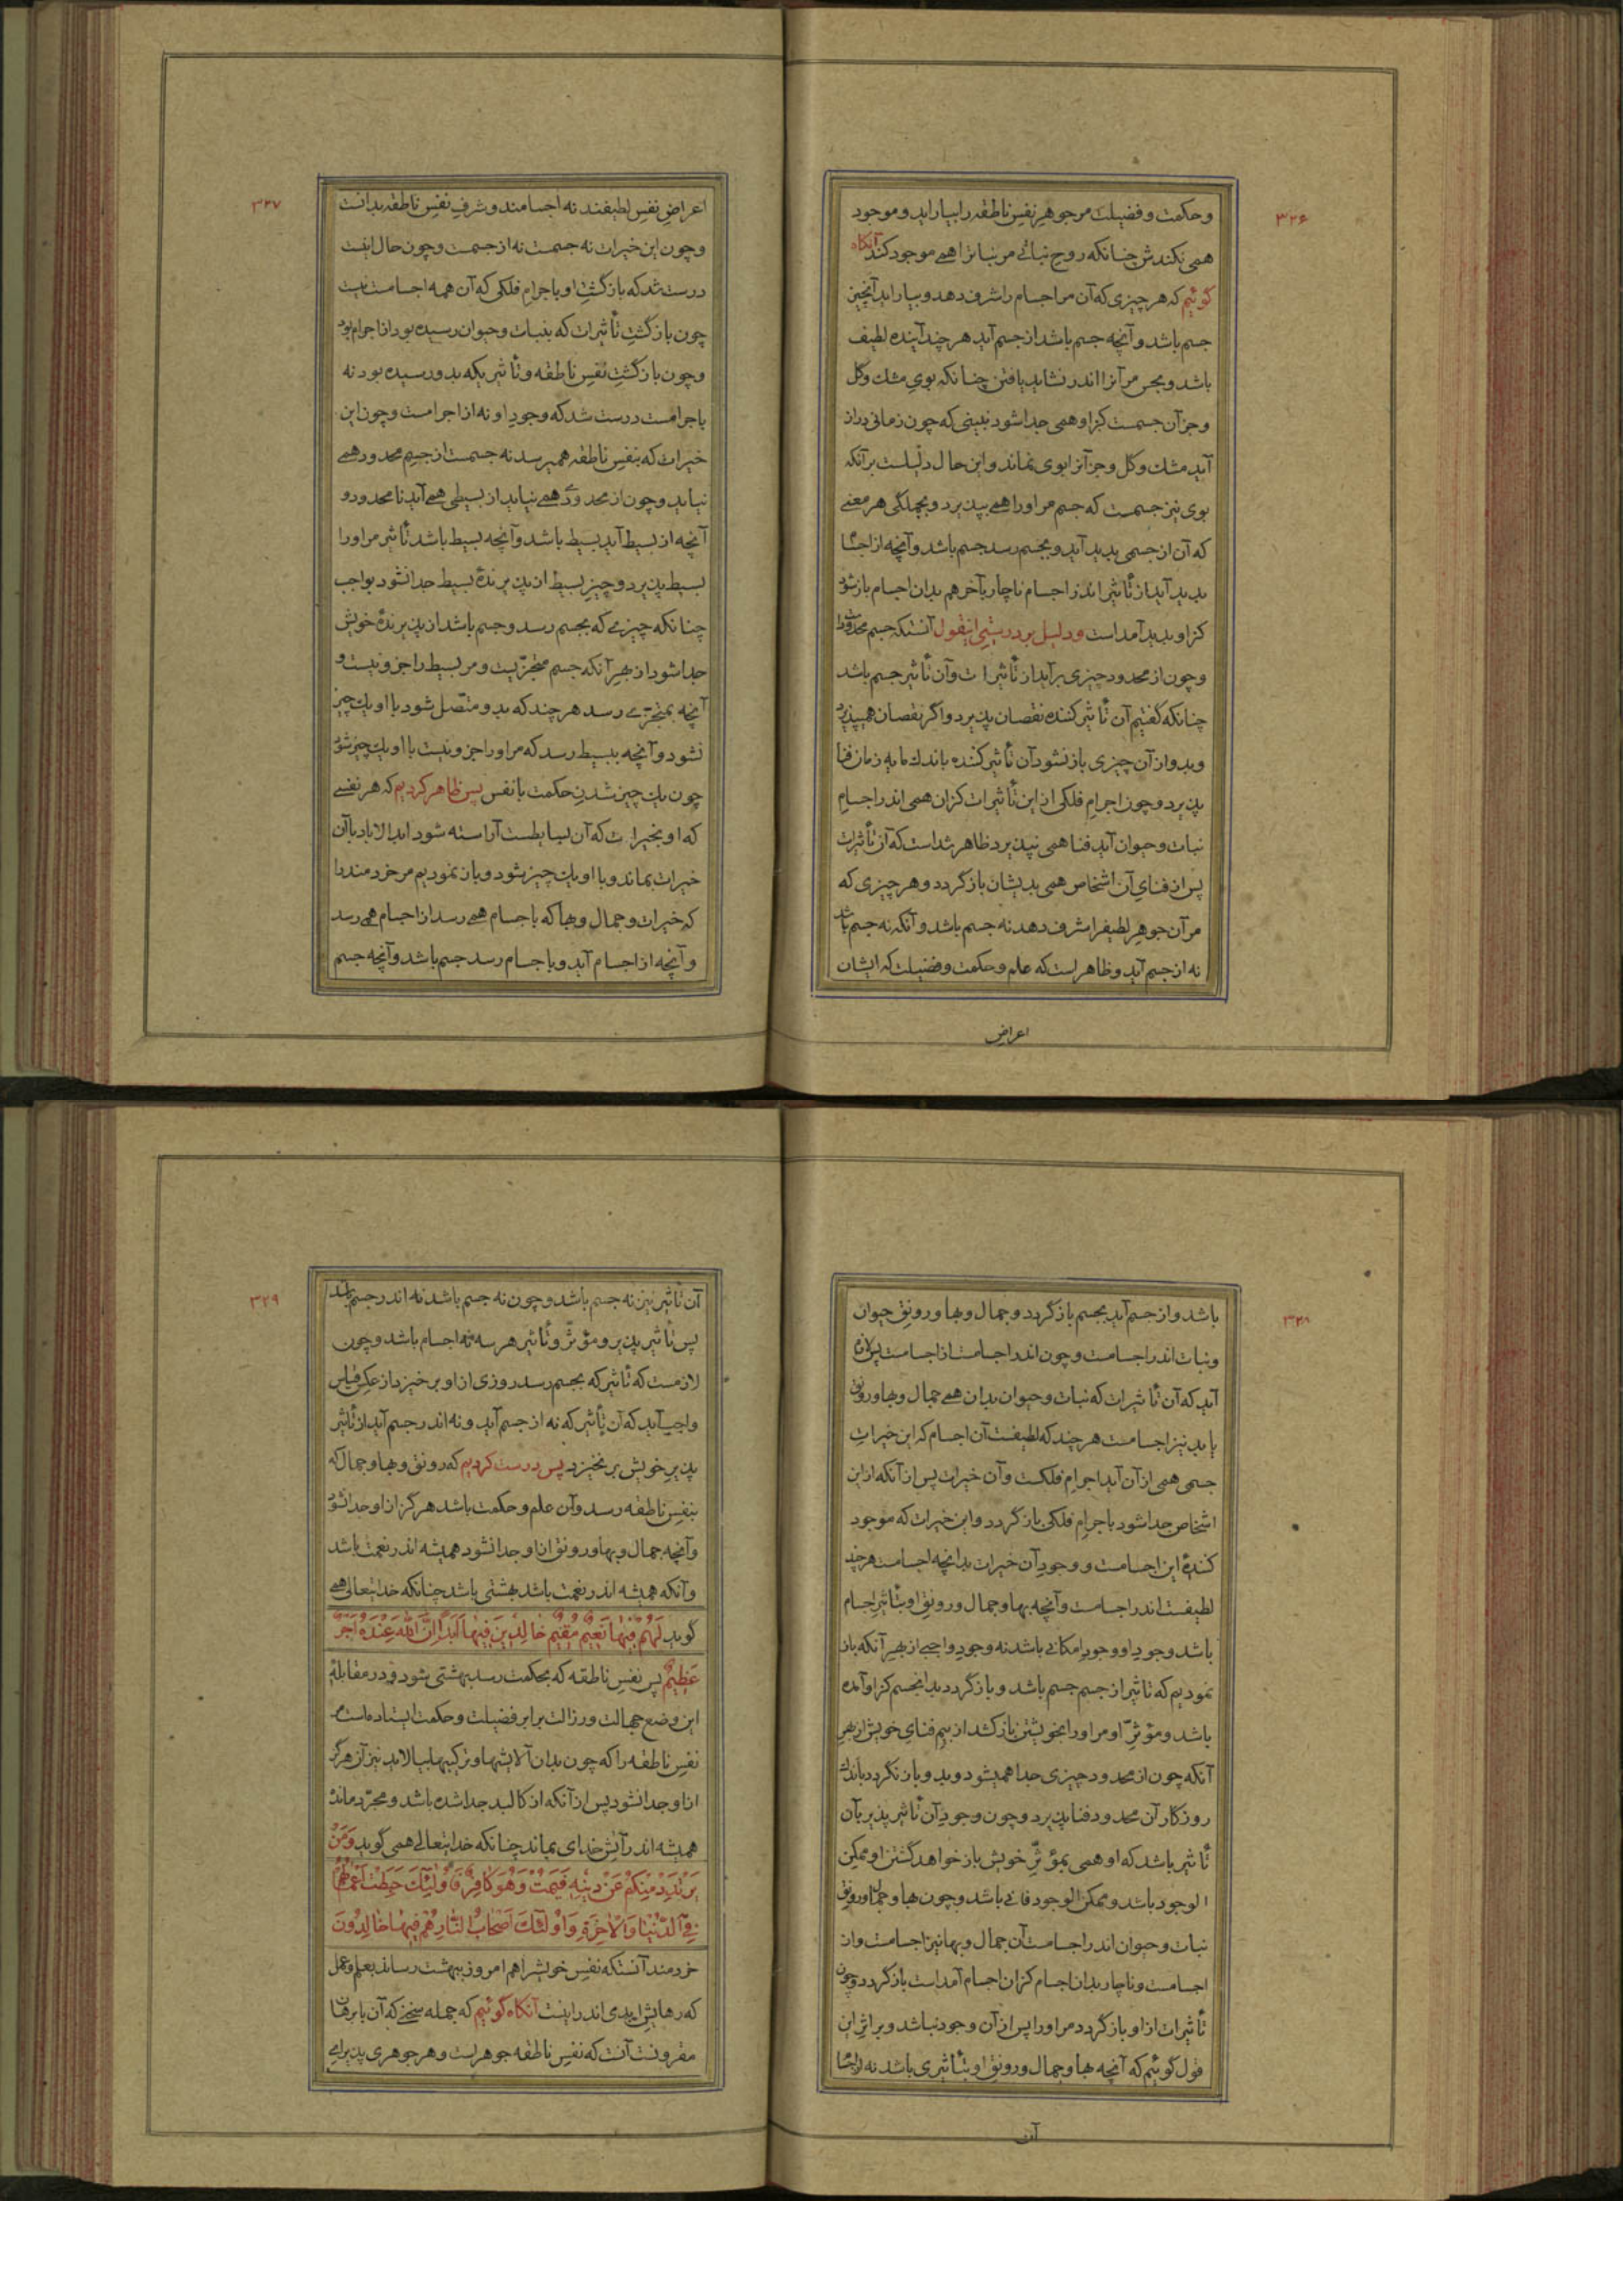 ۳۲۶
و حکمت و فضیلت مر جوهرِ نفسِ ناطقه را بیاراید و موجود
همی نکندش چنانکه روحِ نباتی مر نبات را همی موجود کند آنگاه
گوئیم که هر چیزی که آن مر اجسام را شرف دهد و بیاراید آنچیز
جسم باشد و آنچه جسم باشد از جسم آید هر چند آینده لطیف
باشد و بحس مر آنرا اندر نشاید یافتن چنانکه بوی مشک و گل
و جز آن جسمست کزاو همی جدا شود نبینی که چون زمانی دراز
آید مشک و گل و جز آنرا بوی نماند و این حال دلیلست بر آنکه
بوی نیز جسمست که جسم مر او را همی بپذیرد و بجملگی هر معنی
که آن از جسمی پدید آید و بجسم رسد جسم باشد و آنچه از اجسام
پدید آید از تأثیر اندر اجسام ناچار بآخر هم بدان اجسام باز شود
کزاو پدید آمد است و دلیل بر درستیِ اینقول آنستکه جسم محدود است
و چون از محدود چیزی برآید از تأثیرات و آن تأثیر جسم باشد
چنانکه گفتیم آن تأثیر کننده نقصان پذیرد و اگر نقصان همیپذیرد
و بدو از آن چیزی باز نشود آن تأثیر کننده باندک مایه زمان فنا
پذیرد و چون اجرامِ فلکی از این تأثیرات کزان همی اندر اجسامِ
نبات و حیوان آید فنا همی نپذیرد ظاهر شد است که آن تأثیرات
پس از فنایِ آن اشخاص همی بدیشان باز گردد و هر چیزی که
مر آن جوهرِ لطیفرا شرف دهد نه جسم باشد و آنکه نه جسم باشد
نه از جسم آید و ظاهر است که علم و حکمت و فضیلت که ایشان
اعراض
۳۲۷
اعراضِ نفسِ لطیفند نه اجسامند و شرفِ نفسِ ناطقه بدانست
و چون این خیرات نه جسمست نه از جسمست و چون حال اینست
درست شد که بازگشتِ او باجرامِ فلکی که آن همه اجسامست نیست
چون بازگشتِ تأثیرات که بنبات و حیوان رسیده بود از اجرام بود
و چون بازگشتِ نفسِ ناطقه و تأثیریکه بدو رسیده بود نه
باجرامست درست شد که وجودِ او نه از اجرامست و چون این
خیرات که بنفسِ ناطقه همیرسد نه جسمست از جسمِ محدود همی
نیاید و چون از محدودی همی نیاید از بسیطی همی آید نامحدود و
آنچه از بسیط آید بسیط باشد و آنچه بسیط باشد تأثیر مر او را
بسیط پذیرد و چیزِ بسیط از پذیرندهٔ بسیط جدا نشود بواجب
چنانکه چیزی که بجسم رسد و جسم باشد از پذیرندهٔ خویش
جدا شود از بهرِ آنکه جسم متجزّیست و مر بسیط را جزو نیست و
آنچه بمتجزّی رسد هر چند که بدو متّصل شود با او یک چیز
نشود و آنچه ببسیط رسد که مر او را جزو نیست با او یک چیز شود
چون یک چیز شدنِ حکمت با نفس پس ظاهر کردیم که هر نفسی
که او بخیرات که آن بسایطست آراسته شود ابدالاباد با آن
خیرات بماند و با او یک چیز شود و باز نمودیم مر خردمند را
که خیرات و جمال و بها که باجسام همی رسد از اجسام همی رسد
و آنچه از اجسام آید و باجسام رسد جسم باشد و آنچه جسم
۳۲۸
باشد و از جسم آید بجسم باز گردد و جمال و بها و رونقِ حیوان
و نبات اندر اجسامست و چون اندر اجسامست از اجسامست پس لازم
آید که آن تأثیرات که نبات و حیوان بدان همی جمال و بها و رونق
یابد نیز اجسامست هر چند که لطیفست آن اجسام که این خیراتِ
جسمی همی از آن آید اجرامِ فلکست و آن خیرات پس از آنکه از این
اشخاص جدا شود باجرامِ فلکی باز گردد و این خیرات که موجود
کنندهٔ این اجسامست و وجودِ آن خیرات بدانچه اجسامست هر چند
لطیفست اندر اجسامست و آنچه بها و جمال و رونقِ او بتأثیرِ اجسام
باشد وجودِ او وجودِ امکانی باشد نه وجودِ واجبی از بهرِ آنکه باز
نمودیم که تاثیر از جسم جسم باشد و باز گردد بدانجسم کزاو آمده
باشد و مؤثرِّ او مر او را بخویشتن باز کشد از بیمِ فنایِ خویش از بهرِ
آنکه چون از محدود چیزی جدا همیشود و بدو باز نگردد باندک
روزگار آن محدود فنا پذیرد و چون وجودِ آن تأثیر پذیر بآن
تأثیر باشد که او همی بمؤثّرِ خویش باز خواهد گشتن او ممکن
الوجود باشد و ممکن الوجود فانی باشد و چون بها و جمال و رونقِ
نبات و حیوان اندر اجسامست آن جمال و بها نیز اجسامست و از
اجسامست و ناچار بدان اجسام کزان اجسام آمد است باز گردد و چون
تأثیرات از او باز گردد مر او را پس از آن وجود نباشد و بر اثرِ این
قول گوئیم که آنچه بها و جمال و رونقِ او بتأثیری باشد نه از اجسام
آن
۳۲۹
آن تأثیر نیز نه جسم باشد و چون نه جسم باشد نه اندر جسم باشد
پس تأثیر پذیر و مؤثّر و تأثیر هر سه نه اجسام باشد و چون
لازمست که تأثیر که بجسم رسد روزی از او بر خیزد از عکسِ قیاس
واجب آید که آن تأثیر که نه از جسم آید و نه اندر جسم آید از تأثیر
پذیرِ خویش بر نخیزد پس درست کردیم که رونق و بها و جمال که
بنفسِ ناطقه رسد و آن علم و حکمت باشد هرگز از او جدا نشود
و آنچه جمال و بها و رونق از او جدا نشود همیشه اندر نعمت باشد
و آنکه همیشه اندر نعمت باشد بهشتی باشد چنانکه خدایتعالی همی
گوید لَهُمْ فیهٰا نَعیمٌ مُقیمٌ خٰالِدینَ فیهٰا اَبَدًا اِنَّ اللّٰهَ عِنْدَهُ اَجْرٌ
عَظیمٌ پس نفسِ ناطقه که بحکمت رسد بهشتی شود و در مقابلهٔ
این وضع جهالت و رزالت برابرِ فضیلت و حکمت ایستاده است مر
نفسِ ناطقه را که چون بدان آلایشها و ترکیبها بیالاید نیز آن هرگز
از او جدا نشود پس از آنکه از کالبد جدا شده باشد و مجرّد مانده
همیشه اندر آتشِ خدای بماند چنانکه خدایتعالی همی گوید وَ مَنْ
یَرْتَدِدْ مِنْکُمْ عَنْ دینِهِ فَیَمُتْ وَ هُوَ کٰافِرٌ فَاُولٰئِکَ حَبِطَتْ اَعْمٰالُهُمْ
فِی الدُّنْیٰا وَ الْاٰخِرَةِ وَ اُولٰئِکَ اَصْحٰابُ النّٰارِ هُمْ فیهٰا خٰالِدُونَ
خردمند آنستکه نفسِ خویشرا هم امروز ببهشت رساند بعلم و عمل
که رهایشِ ابدی اندر اینست آنگاه گوئیم که جمله سخنی که آن با برهان
مقرونست آنست که نفسِ ناطقه جوهر است و هر جوهری پذیرای